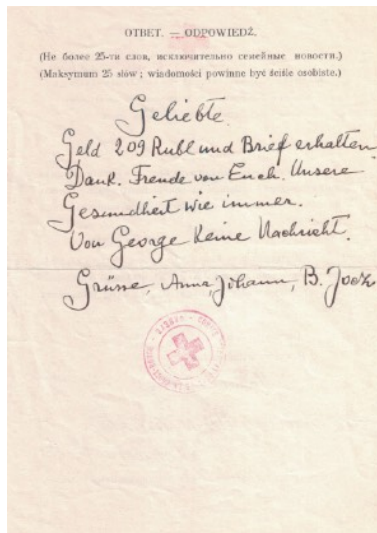 ОТВЕТ. — ODPOWIEDŹ.
(Не более 25-ти слов, исключительно семейные новости.)
(Maksymum 25 słów; wiadomości powinne być ściśle osobiste.)
Geliebte
Geld 209 Rubl und Brief erhalten
Dank. Freude von Euch. Unsere
Gesundheit wie immer.
Von George keine Nachricht.
Grüsse, Anna, Johann, B.